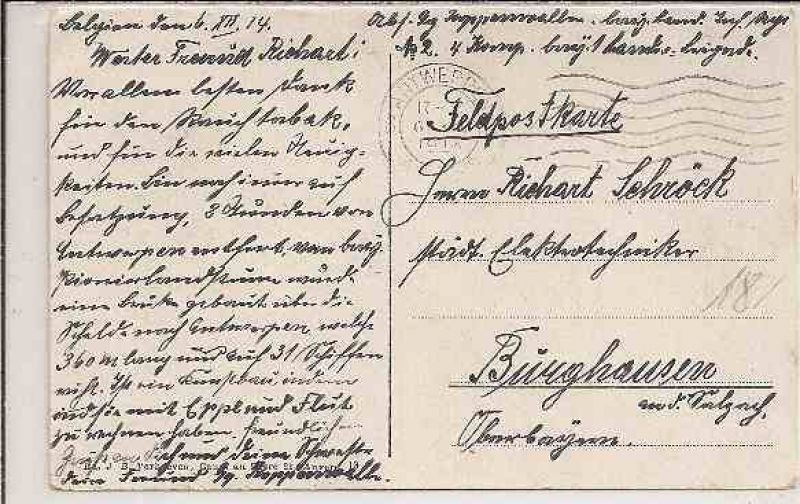 Belgien den 6. XII. 14.
Werter Freund Richart!
Vor allem besten Dank
für den Rauchtabak,
und für die vielen Neuig-
keiten. Bin noch immer auf
Besatzung, 3 Stunden von
Antwerpen entfernt, von bayr.
Pionierlandsturm wurde
eine Bruke gebaut über die
Schelde nach Antwerpen welche
360 m lang und auf 31 Schiffen
ruht. Ist ein Kunstbau indem
und sie mit Eppe und Flut
zu rechnen haben. Freundliche
Grüßen Dich und deine Schweste
dein Freund Gg.
Abs. Gg bayr. Land. Inf. Regt
No 2. 4 Komp. bayr. Landw. Brigade.
Feldpostkarte
Herrn Richart Schröck
städt. Elektrotechniker
Burghausen
a. d. Salzach,
Oberbayern.
181